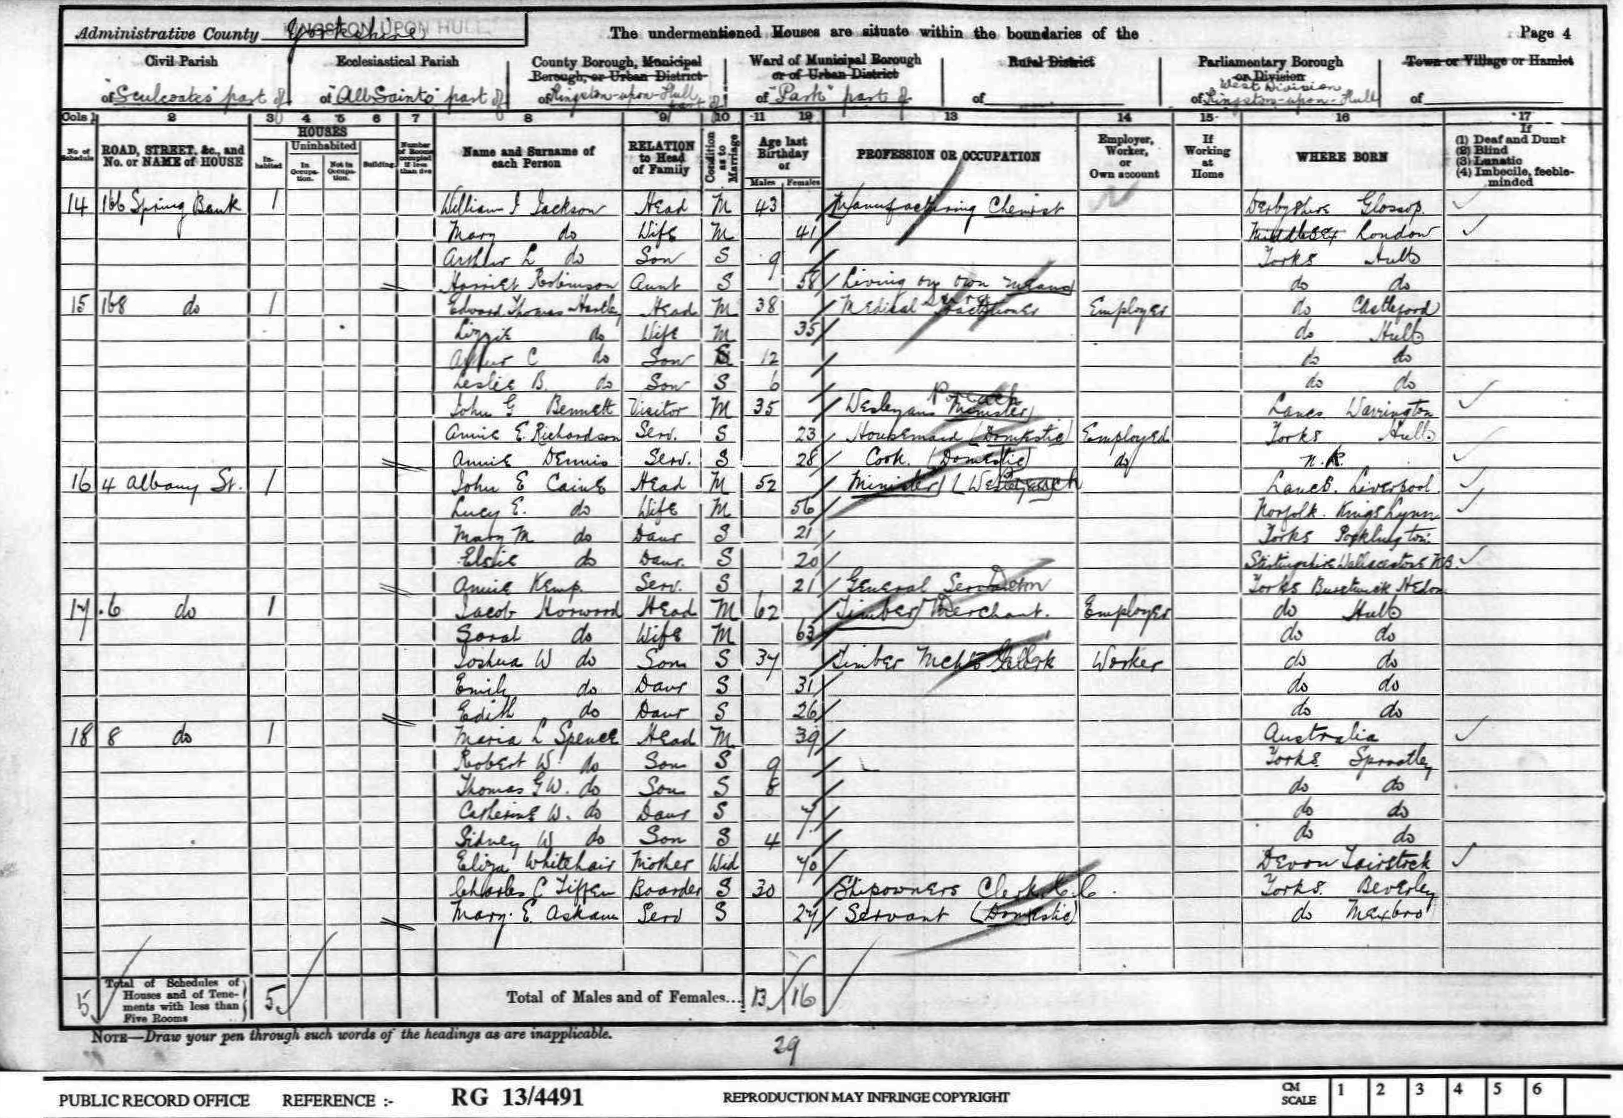 Administrative County Yorkshire KINGSTON UPON HULL
The undermentioned Houses are situate within the boundaries of the
Page 4
Civil Parish
of "Sculcoates" part of
Ecclesiastical Parish
of "All Saints" part of
County Borough, Municipal
Borough, or Urban District
of Kingston-upon-Hull part of
Ward of Municipal Borough
or of Urban District
of "Park" part of
Rural District
of
Parliamentary Borough
or Division
West Division
of Kingston-upon-Hull
Town or Village or Hamlet
of
Cols 1 2 3 4 5 6 7 8 9 10 11 12 13 14 15 16 17
No. of Schedule
ROAD, STREET, &c., and No. or NAME of HOUSE
HOUSES
Inhabited
Uninhabited
In Occupation.
Not in Occupation.
Building.
Number of Rooms occupied if less than five
Name and Surname of each Person
RELATION to Head of Family
Condition as to Marriage
Age last Birthday of
Males Females
PROFESSION OR OCCUPATION
Employer, Worker, or Own account
If Working at Home
WHERE BORN
If
(1) Deaf and Dumb
(2) Blind
(3) Lunatic
(4) Imbecile, feeble-minded
14 166 Spring Bank 1 William J Jackson Head M 43 Manufacturing Chemist Derbyshire Glossop
Mary do Wife M 41 Middlesex London
Arthur L do Son S 9 Yorks Hull
Harriet Robinson Aunt S 58 Living on own means do do
15 168 do 1 Edward Thomas Head M 38 Medical Practitioner Employer do Castleford
Lizzie do Wife M 35 do Hull
Arthur C do Son S 12 do do
Leslie B. do Son S 6 do do
John G Bennett Visitor M 35 Wesleyan Minister Lancs Warrington
Annie E. Richardson Serv. S 23 Housemaid (Domestic) Employed Yorks Hull
Annie Dennis Serv. S 28 Cook (Domestic) do N.K.
16 4 Albany St. 1 John E Caine Head M 52 Minister Lancs. Liverpool
Lucy E. do Wife M 56 Norfolk. Kings Lynn
Mary M do Daur S 21 Yorks Pocklington
Elsie do Daur. S 20 Stirlingshire N.B.
Annie Kemp. Serv. S 21 General Serv Dom Yorks Burstwick Hedon
17 6 do 1 Jacob Horword Head M 62 Timber Merchant. Employer do Hull
Sarah do Wife M 63 do do
Joshua W do Son S 37 Timber Mcht's Clerk Worker do do
Emily do Daur S 31 do do
Edith do Daur S 26 do do
18 8 do 1 Maria L Spence Head M 39 Australia
Robert W. do Son S 9 Yorks. Sproatley
Thomas G W. do Son S 8 do do
Catherine W. do Daur S 7 do do
Sidney W do Son S 4 do do
Eliza Whitehair Mother Wid 70 Devon
Charles C Tiffen Boarder S 30 Shipowners Clerk Yorks. Beverley
Mary. E. Askam Serv S 27 Servant (Domestic) do Mexbro'
5 Total of Schedules of Houses and of Tenements with less than Five Rooms 5
Total of Males and of Females... 13 16
NOTE—Draw your pen through such words of the headings as are inapplicable.
29
PUBLIC RECORD OFFICE REFERENCE :- RG 13/4491 REPRODUCTION MAY INFRINGE COPYRIGHT CM SCALE 1 2 3 4 5 6